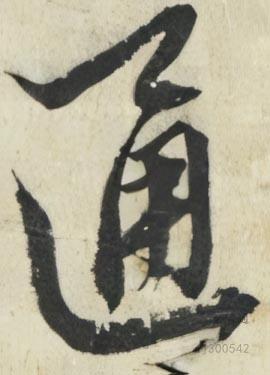 通
300542